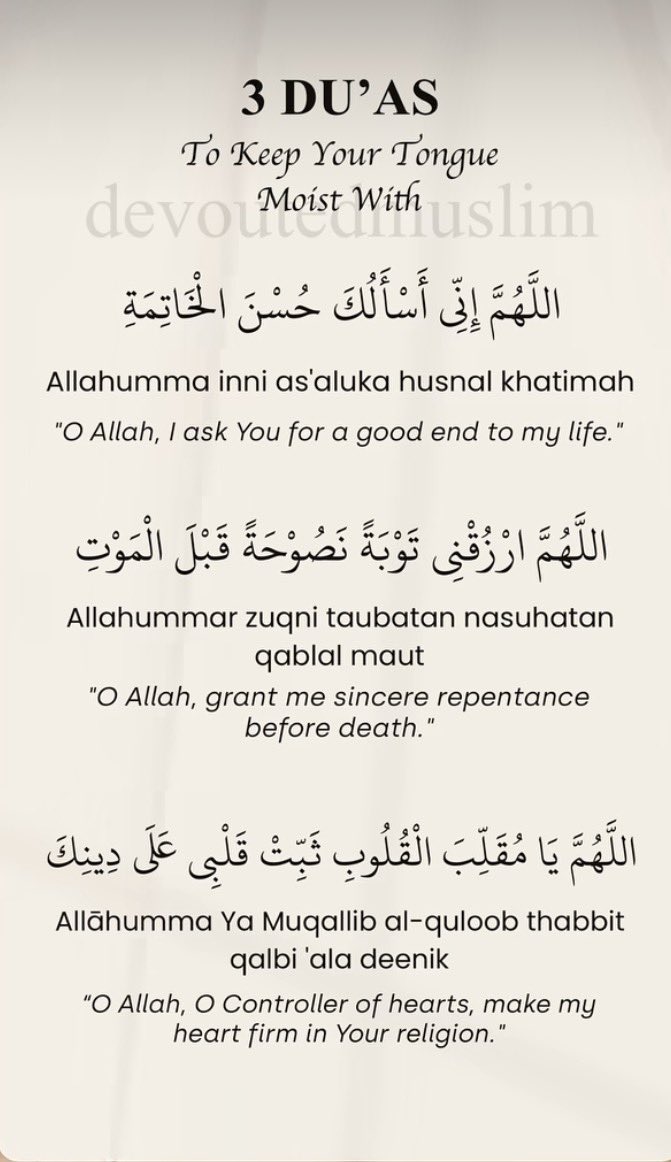 3 DU'AS
To Keep Your Tongue
Moist With
devoutedmuslim
اللَّهُمَّ إِنِّي أَسْأَلُكَ حُسْنَ الْخَاتِمَةِ
Allahumma inni as'aluka husnal khatimah
"O Allah, I ask You for a good end to my life."
اللَّهُمَّ ارْزُقْنِى تَوْبَةً نَصُوْحَةً قَبْلَ الْمَوْتِ
Allahummar zuqni taubatan nasuhatan
qablal maut
"O Allah, grant me sincere repentance
before death."
اللَّهُمَّ يَا مُقَلِّبَ الْقُلُوبِ ثَبِّتْ قَلْبِى عَلَى دِينِكَ
Allāhumma Ya Muqallib al-quloob thabbit
qalbi 'ala deenik
"O Allah, O Controller of hearts, make my
heart firm in Your religion."